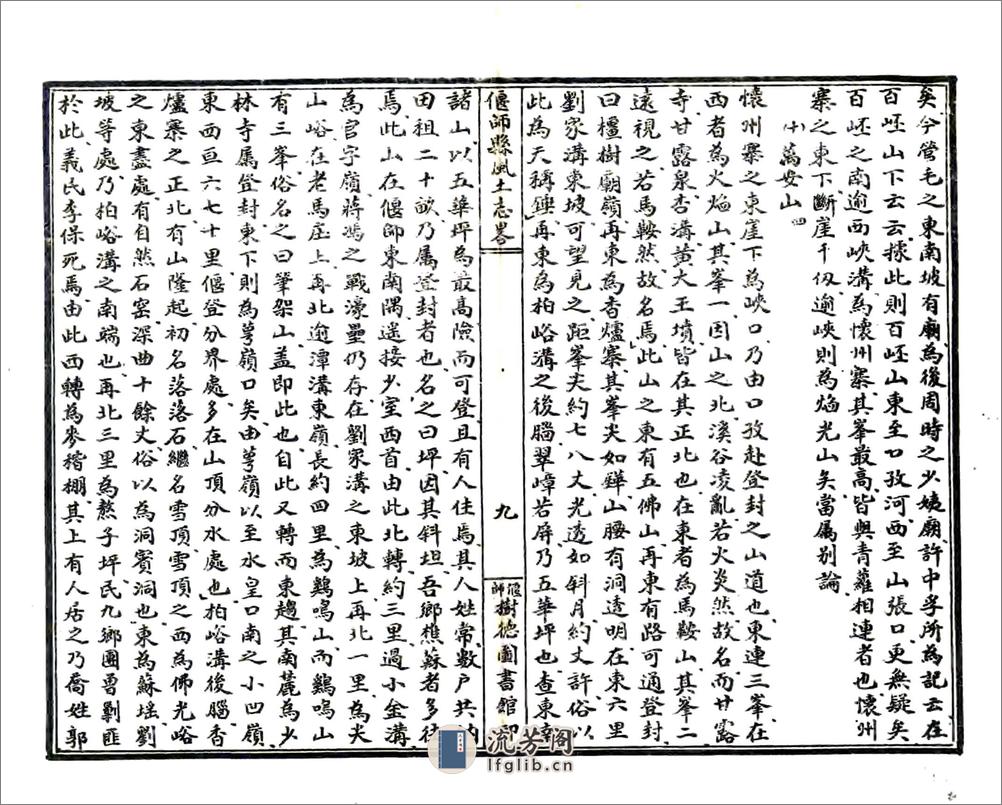 矣今管毛之東南坡有廟為後周時之少姨廟許中孚所為記云在
百岯山下云云據此則百岯山東至口孜河西至山張口更無疑矣
百岯之南逾西峽溝為懷州寨其峯最高皆與青蘿相連者也懷州
寨之東下斷崖千仭逾峽則為焰光山矣當属别論
(十)萬安山四
懷州寨之東崖下為峽口乃由口孜赴登封之山道也東連三峯在
西者為火焰山其峯一因山之北溪谷凌亂若火炎然故名而甘露
寺甘露泉杏溝黄大王墳皆在其正北也在東者為馬鞍山其峯二
遠視之若馬鞍然故名焉此山之東有五佛山再東有路可通登封
曰橿樹廟嶺再東為香爐寨其峯尖如鏵山腰有洞透明在東六里
劉家溝東坡可望見之距峯尖約七八丈光透如斜月約丈許俗以
此為天稱錘再東為柏峪溝之後腦翠嶂若屏乃五華坪也查東幸
偃師縣風土志畧
九
偃師樹德圖書館印
諸山以五華坪為最高險而可登且有人住焉其人姓常數户共納
田租二十畝乃属登封者也名之曰坪因其斜坦吾鄉樵蘇者多往
焉此山在偃師東南隅遥接少室西首由此北轉約三里過小金溝
為官字嶺蔣馮之戰濠壘仍存在劉家溝之東坡上再北一里為尖
山峪在老馬庄上再北逾潭溝東嶺長約四里為鷄鳴山而鷄鳴山
有三峯俗名之曰筆架山盖即此也自此又轉而東趨其南麓為少
林寺属登封東下則為䓤嶺口矣由䓤嶺以至水皇口南之小凹嶺
東西亘六七十里偃登分界處多在山頂分水處也柏峪溝後腦香
爐寨之正北有山隆起初名落落石繼名雪頂雪頂之西為佛光峪
之東盡處有自然石窑深曲十餘丈俗以為洞賓洞也東為蘇塯劉
坡等處乃柏峪溝之南端也再北三里為熬子坪民九鄉團曾剿匪
於此義氏李保死焉由此西轉為麥稭棚其上有人居之乃喬姓郭
流芳阁
lfglib.cn